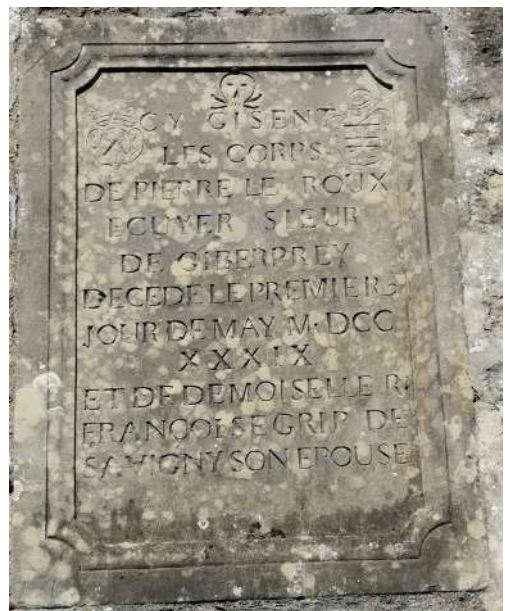 CY GISENT
LES CORPS
DE PIERRE LE ROUX
ECUYER SIEUR
DE GIBERPREY
DECEDE LE PREMIER
JOUR DE MAY M·DCC
XXXIX
ET DE DEMOISELLE R·
FRANCOISE GRIP DE
SAVIGNY SON EPOUSE